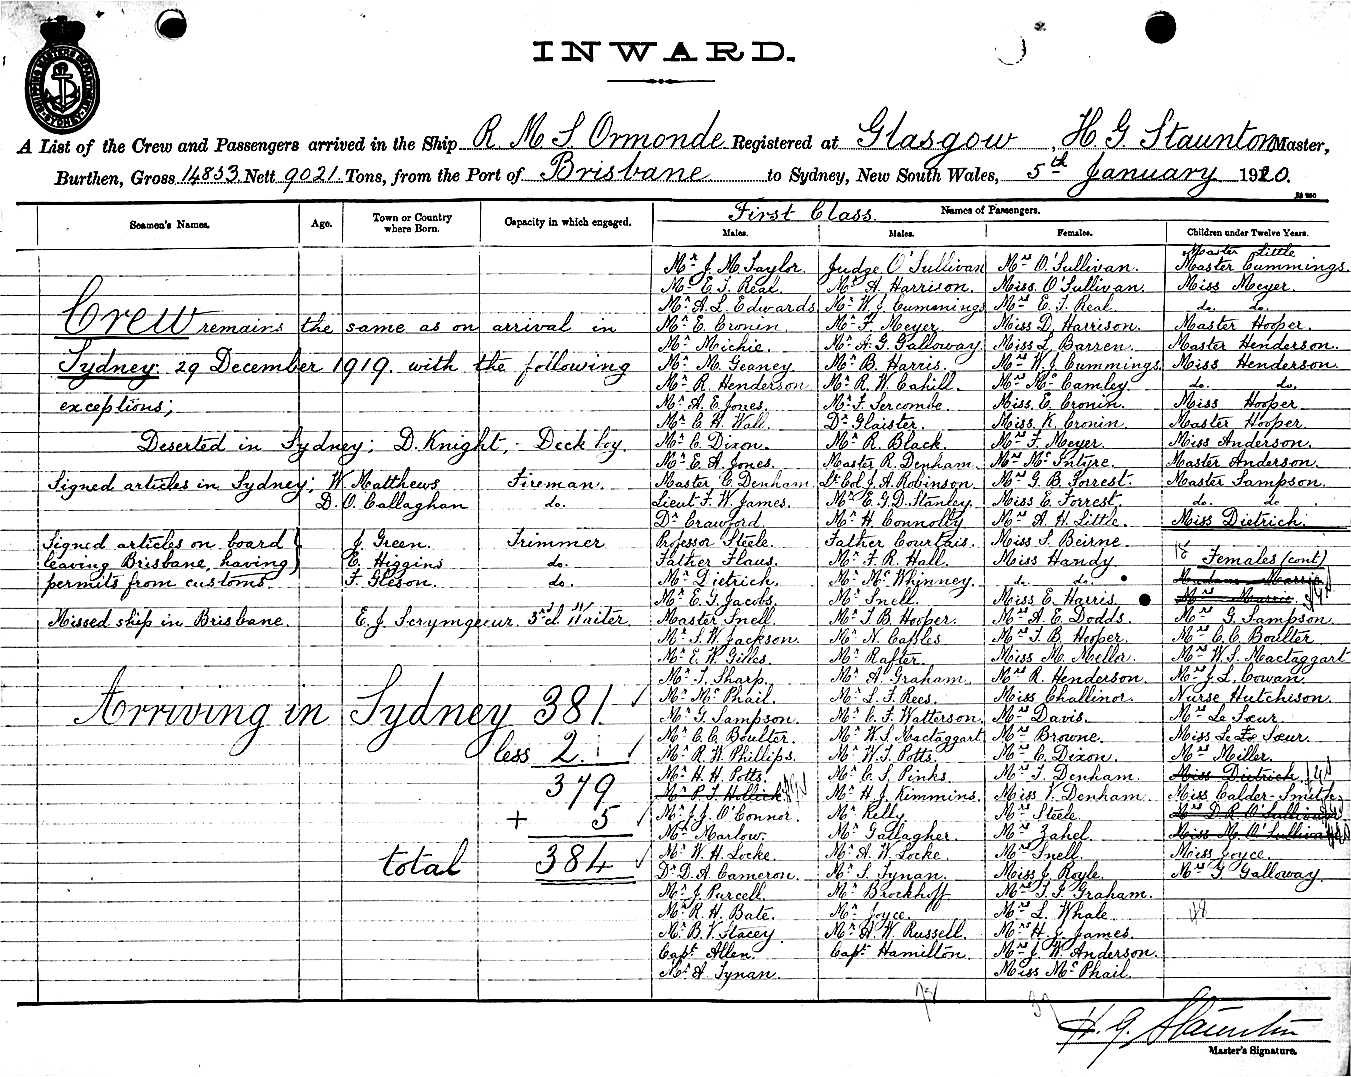 INWARD.
A List of the Crew and Passengers arrived in the Ship R M S Ormonde Registered at Glasgow, H G Staunton Master,
Burthen, Gross 14853 Nett 9021 Tons, from the Port of Brisbane to Sydney, New South Wales, 5th January 1920.
Seamen's Names. Age. Town or Country where Born. Capacity in which engaged. First Class. Names of Passengers.
Males. Males. Females. Children under Twelve Years.
Crew remains the same as on arrival in
Sydney. 29 December 1919. with the following
exceptions;
Deserted in Sydney; D. Knight, - Deck boy.
Signed articles in Sydney; W. Matthews Fireman.
D. O. Callaghan do.
Signed articles on board J. Green. Trimmer
leaving Brisbane, having E. Higgins do.
permits from customs F. Gleson. do.
Missed ship in Brisbane. E. J. Scrymgeour. 3rd Waiter.
Arriving in Sydney 381
less 2
379
+ 5
total 384
Mr J. M. Taylor.
Mr E. T. Real.
Mr A. L. Edwards.
Mr E. Cronin.
Mr Michie.
Mr M. Geaney.
Mr R. Henderson
Mr A. E. Jones.
Mr C. H. Wall.
Mr C. Dixon.
Mr E. A. Jones.
Master C. Denham.
Lieut F. W. James.
Dr Crawford
Professor Steele.
Father Flaus.
Mr Dietrich.
Mr E. G. Jacobs.
Master Snell.
Mr T. W. Jackson.
Mr E. W. Gilles.
Mr T. Sharp.
Mr McPhail.
Mr G. Sampson.
Mr C. C. Boulter.
Mr R. W. Phillips.
Mr H. H. Potts.
Mr P. T. Hollick
Mr J. J. O'Connor.
Mr Marlow.
Mr W. H. Locke.
Dr D. A. Cameron.
Mr J. Purcell.
Mr R. H. Bate.
Mr B. V. Stacey
Capt. Allen.
Mr A. Tynan.
Judge O'Sullivan
Mr A. Harrison.
Mr W. J. Cummings
Mr F. Meyer
Mr A. G. Galloway
Mr B. Harris.
Mr R. W. Cahill.
Mr F. Sercombe.
Dr Glaister.
Mr R. Black.
Master R. Denham.
Lt Col J. A. Robinson.
Mr E. G. D. Stanley.
Mr H. Connolly
Father Courthis.
Mr F. R. Hall.
Mr McWhinney.
Mr Snell.
Mr T. B. Hooper.
Mr N. Caples
Mr Rafter.
Mr A. Graham.
Mr L. F. Rees.
Mr C. F. Watterson.
Mr W. S. Mactaggart
Mr W. J. Potts.
Mr C. S. Pinks.
Mr H. J. Kimmins.
Mr Kelly
Mr Gallagher.
Mr A. W. Locke.
Mr S. Tynan.
Mr Brockhoff
Mr Joyce.
Mr A. W. Russell.
Capt. Hamilton.
Mrs O'Sullivan.
Miss O'Sullivan.
Mrs E. T. Real
Miss D. Harrison.
Miss L. Barren.
Mrs W. J. Cummings.
Mrs McCamley
Miss. E. Cronin.
Miss. K. Cronin.
Mrs F. Meyer.
Mrs McIntyre.
Mrs G. B. Forrest.
Miss E. Forrest.
Mrs A. H. Little.
Miss S. Beirne.
Miss Handy
do. do.
Miss E. Harris.
Mrs A. E. Dodds.
Mrs T. B. Hooper.
Miss M. Mellor.
Mrs R. Henderson
Miss Challinor.
Mrs Davis.
Mrs Browne.
Mrs C. Dixon.
Mrs T. Denham.
Miss V. Denham.
Mrs Steele
Mrs Zahel.
Mrs Snell.
Miss J. Royle.
Mrs T. J. Graham.
Mrs L. Whale
Mrs H. J. James.
Mrs J. W. Anderson.
Miss McPhail.
Master Little
Master Cummings.
Miss Meyer.
do. do.
Master Hooper.
Master Henderson.
Miss Henderson.
do. do.
Miss Hooper
Master Hooper.
Miss Anderson.
Master Anderson.
Master Sampson.
do. do
Miss Dietrich.
18 Females (cont)
Mrs G. Sampson.
Mrs C. C. Boulter
Mrs W. S. Mactaggart
Mrs J. L. Cowan.
Nurse Hutchison.
Mrs Le Sœur.
Miss Le Sœur.
Mrs Miller.
Miss Dietrich
Miss Calder-Smith
Mrs D. R. O'Sullivan
Miss M. O'Sullivan
Miss Joyce.
Mrs G. Galloway.
H. G. Staunton
Master's Signature.